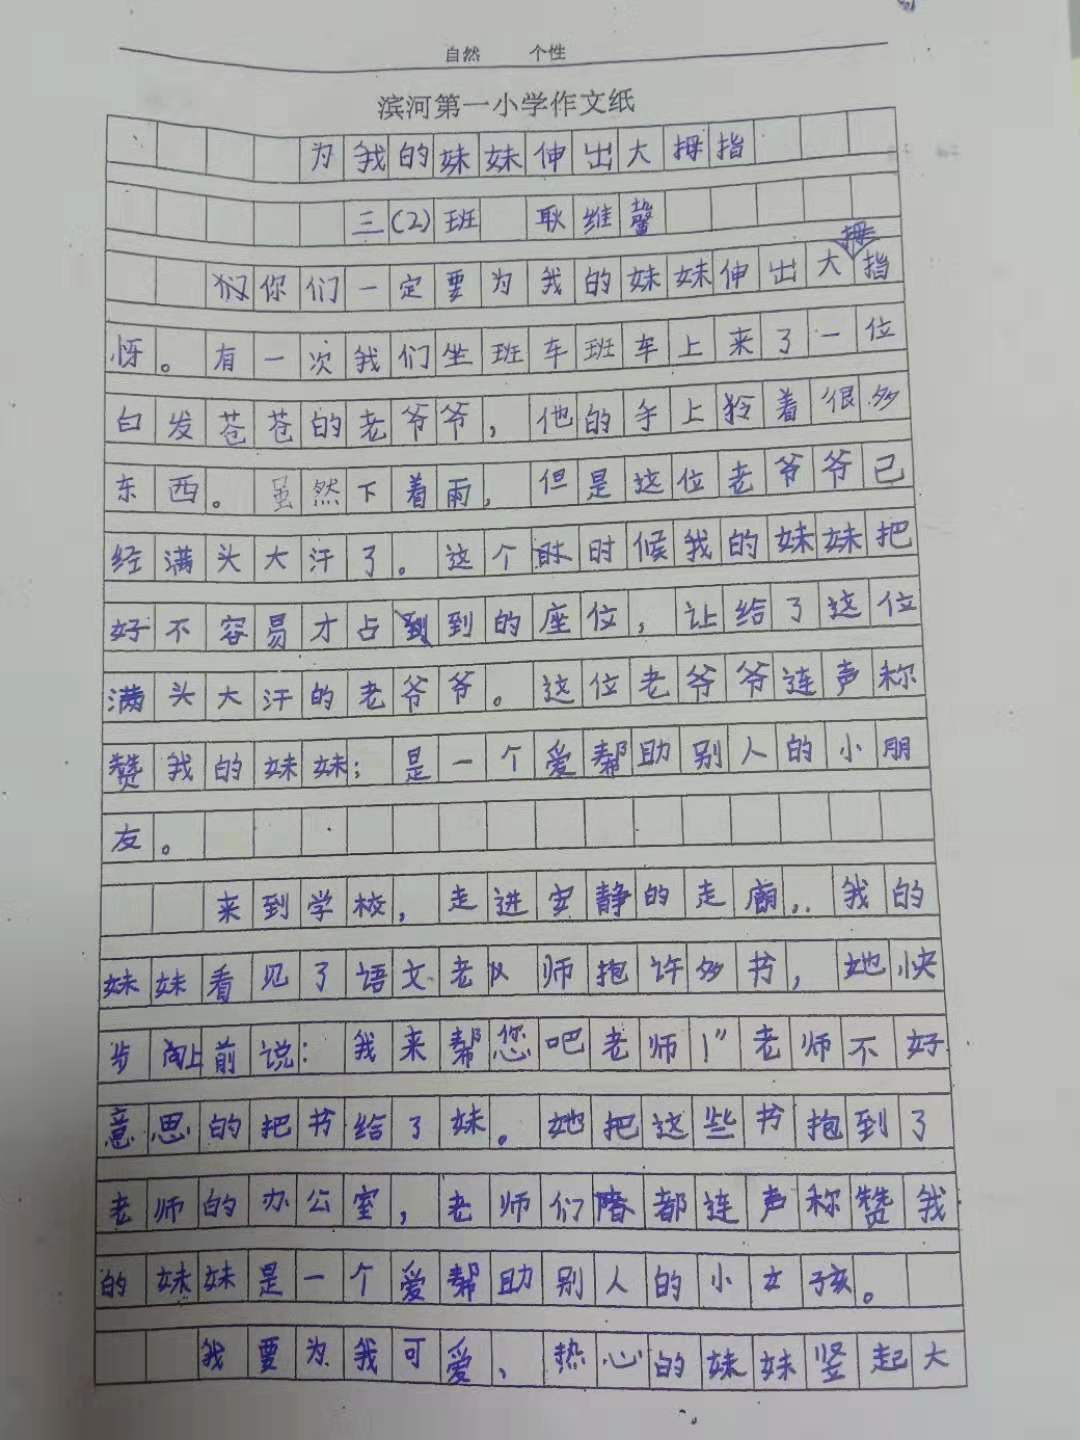 自然 个性
滨河第一小学作文纸
为我的妹妹伸出大拇指
三(2)班 耿维馨
你们一定要为我的妹妹伸出大拇指
呀。有一次我们坐班车班车上来了一位
白发苍苍的老爷爷，他的手上拎着很多
东西。虽然下着雨，但是这位老爷爷已
经满头大汗了。这个时候我的妹妹把
好不容易才占到的座位，让给了这位
满头大汗的老爷爷。这位老爷爷连声称
赞我的妹妹；是一个爱帮助别人的小朋
友。
来到学校，走进安静的走廊，我的
妹妹看见了语文老师抱许多书，她快
步向上前说：我来帮您吧老师！”老师不好
意思的把书给了妹。她把这些书抱到了
老师的办公室，老师们都连声称赞我
的妹妹是一个爱帮助别人的小女孩。
我要为我可爱、热心的妹妹竖起大